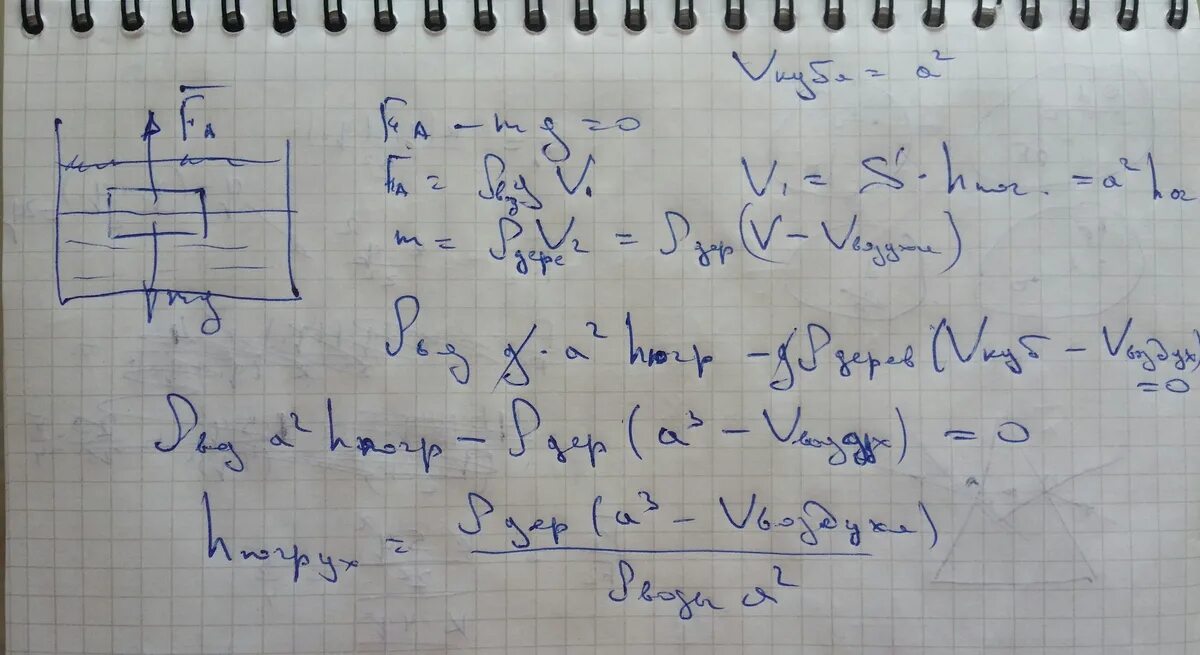 Vкуба = a²
F_A
F_A - mg = 0
F_A = ρвод V₁
V₁ = S · hпог. = a² hп
m = ρдерев V₂ = ρдер (V - Vвоздуха)
mg
ρвд g · a² hпогр - g ρдерев (Vкуб - Vвоздух) = 0
ρвд a² hпогр - ρдер (a³ - Vвоздух) = 0
hпогруж = ρдер (a³ - Vвоздуха) / ρводы a²